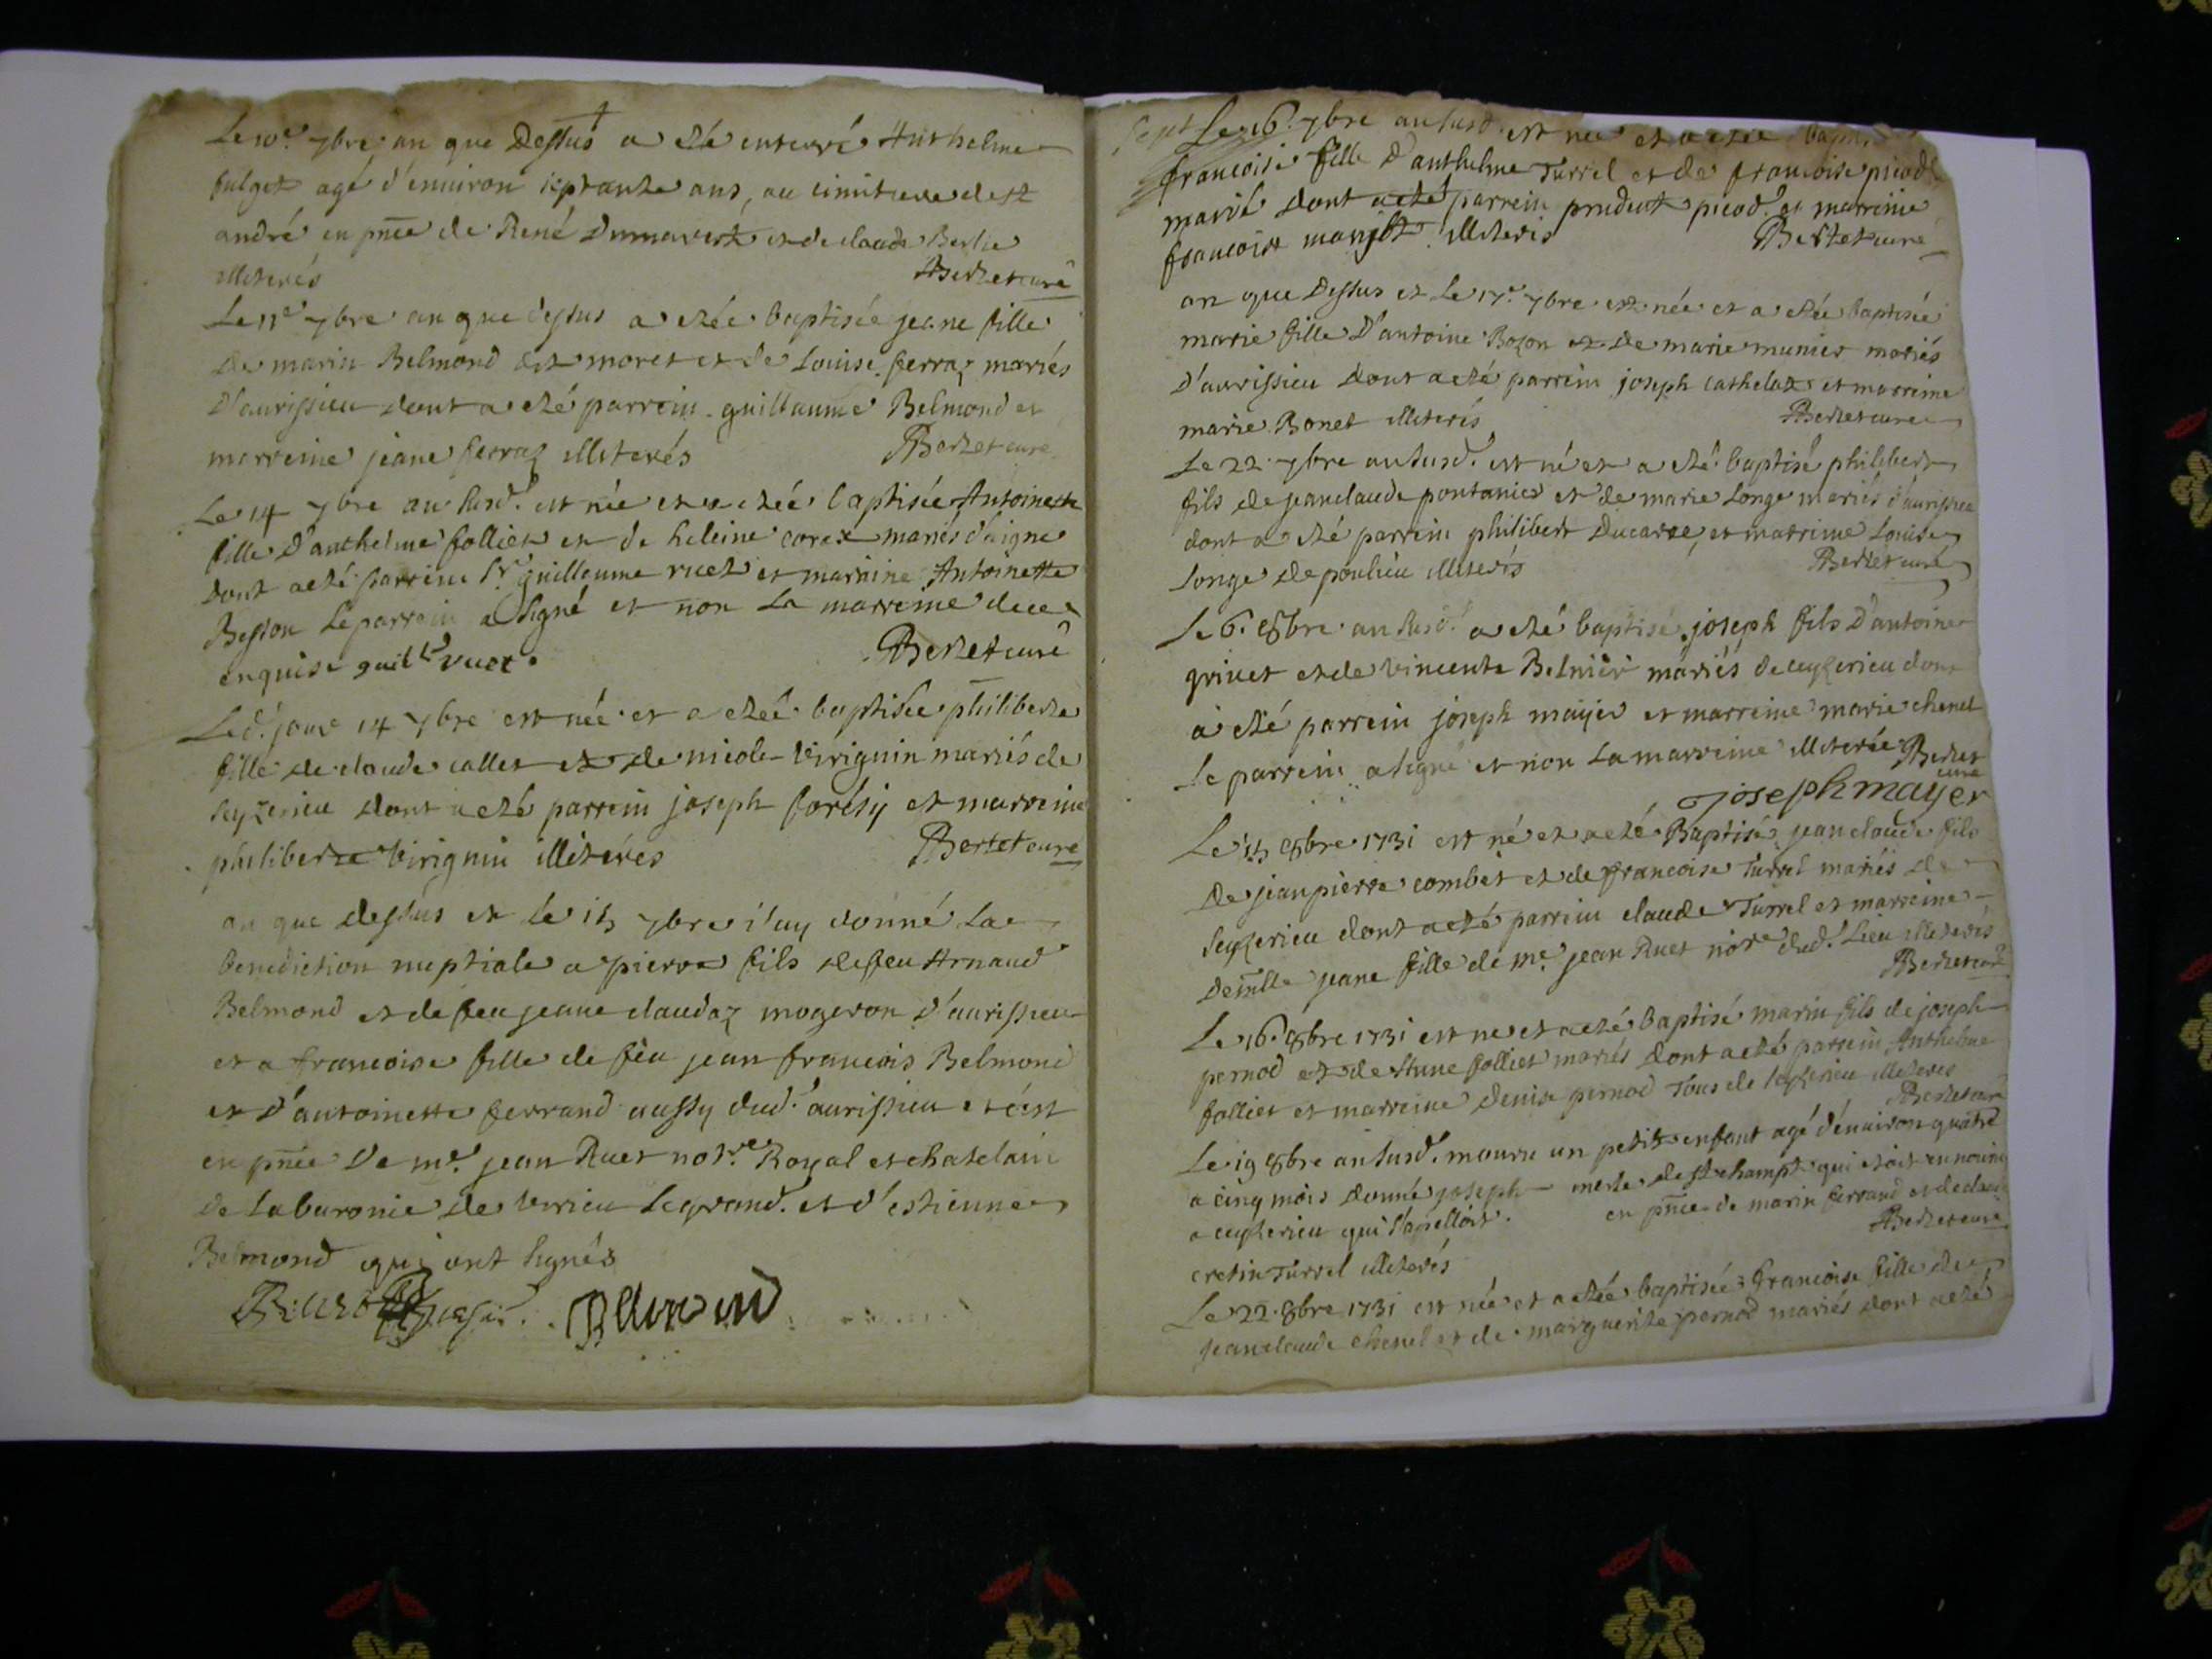 Le 10e 7bre an que Dessus a eté enterré Anthelme
fulget agé d'environ septante ans, au cimitiere de st
andré en pnce de René Dumarest et de claude Berlie
illiterés Bertet curé
Le 11e 7bre an que dessus a etée baptisée jeane fille
de marin Belmond dit moret et de Louise ferraz mariés
d'aurissieu dont a eté parrein guillaume Belmond et
marreine jeane ferraz illiterés Bertet curé
Le 14 7bre an susd. est née et a etée baptisée Antoinette
fille d'anthelme folliet et de heleine corax mariés d'aigne
dont a eté parrein Sr guilleaume ruet et marreine Antoinette
Besson Le parrein a signé et non La marreine de ce
enquise guilLe ruet. Bertet curé
Led. jour 14 7bre est née et a eteé baptisée philiberte
fille de claude callet et de nicole virignin mariés de
seyzerieu dont a eté parrein joseph forésy et marreine
philiberte virignin illiterés Bertet curé
an que dessus et le 15 7bre j'ay donné La
benediction nuptiale a pierre fils de feu Arnaud
Belmond et de feu jeane claudaz mogeron d'aurissieu
et a francoise fille de feu jean francois Belmond
et d'antoinette ferrand aussy dud. aurissieu et c'est
en pnce De me. jean Ruet notre Royal et chatelain
de La baronie de virieu Le grand. et d'estienne
Belmond qui ont signés
Belmond
Sept Le 16. 7bre an susd. est née et a etée bapti
francoise fille d'anthelme Turrel et de francoise picod
marié dont a eté parrein prudent picod. et marreine
francoise illiterés Bertet curé
an que Dessus et Le 17e. 7bre est née et a etée baptisée
marie fille D'antoine Bozon et de marie munier mariés
D'aurissieu dont a eté parrein joseph cathelaz et marreine
marie Bonet illiterés Bertet curé
Le 22 7bre an susd. est né et a eté baptisé philibert
fils de jean claude pontanier et de marie Longe mariés d'aurissieu
dont a eté parrein philibert Ducarre, et marreine Louise
Longe de poulieu illiterés Bertet curé
Le 6. 8bre an susd. a eté baptisé joseph fils D'antoine
grivet et de vincente Belnier mariés de ceyzerieu dont
a eté parrein joseph mayer et marreine marie chenel
Le parrein a signé et non La marreine illiterée Bertet
curé
joseph mayer
Le 15 8bre 1731 est né et a eté Baptisé jean claude fils
De jean pierre combet et de francoise Turrel mariés de
seyzerieu dont a eté parrein claude Turrel et marreine
Demlle jeane fille de me. jean Ruet notre dud. Lieu illiterés
Bertet curé
Le 16. 8bre 1731 est né et a eté Baptisé marin fils de joseph
pernod et de folliet mariés dont a eté parrein Anthelme
folliet et marreine Denise pernod Tous de seyzerieu illiterés
Bertet curé
Le 19 8bre an susd. mouru un petit enfant agé d'environ quatre
a cinq mois donné joseph merle de st champt qui etoit en nourice
a ceyzerieu qui s'apelloit. en pnce de marin ferrand et de claude
cretin Turrel illiterés Bertet curé
Le 22. 8bre 1731 est née et a etée baptisée francoise fille de
jean claude chenel et de marguerite pernod mariés dont a eté